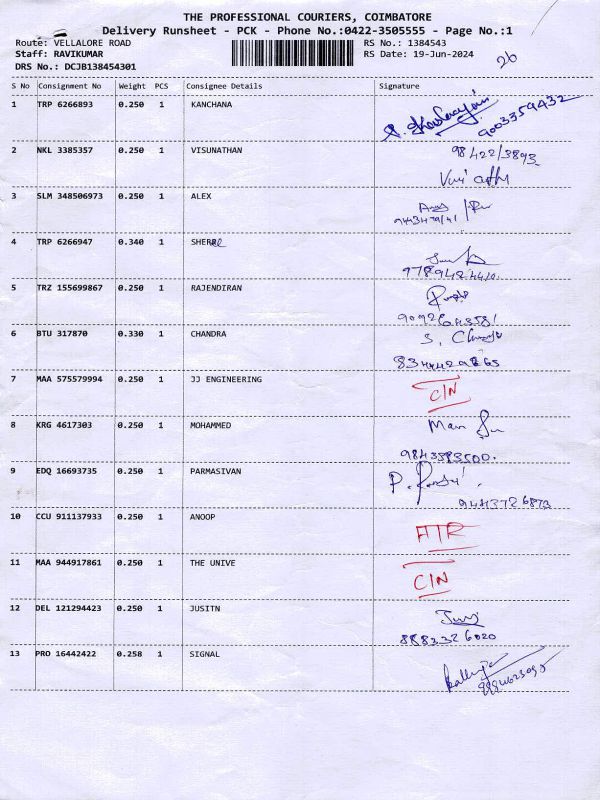 THE PROFESSIONAL COURIERS, COIMBATORE
Delivery Runsheet - PCK - Phone No.:0422-3505555 - Page No.:1
Route: VELLALORE ROAD RS No.: 1384543
Staff: RAVIKUMAR RS Date: 19-Jun-2024
DRS No.: DCJB138454301
26
S No Consignment No Weight PCS Consignee Details Signature
1 TRP 6266893 0.250 1 KANCHANA
9003359432
2 NKL 3385357 0.250 1 VISUNATHAN
98422/3893
3 SLM 348506973 0.250 1 ALEX
4 TRP 6266947 0.340 1 SHER
5 TRZ 155699867 0.250 1 RAJENDIRAN
6 BTU 317870 0.330 1 CHANDRA
7 MAA 575579994 0.250 1 JJ ENGINEERING C/N
8 KRG 4617303 0.250 1 MOHAMMED
9843583500.
9 EDQ 16693735 0.250 1 PARMASIVAN
9443726873
10 CCU 911137933 0.250 1 ANOOP ATR
11 MAA 944917861 0.250 1 THE UNIVE C/N
12 DEL 121294423 0.250 1 JUSITN
8883326020
13 PRO 16442422 0.258 1 SIGNAL